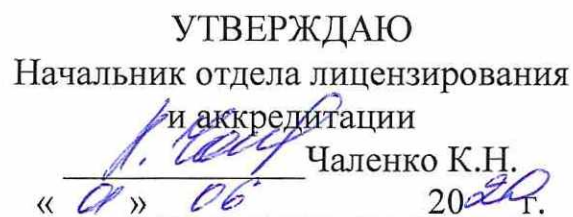 УТВЕРЖДАЮ
Начальник отдела лицензирования
и аккредитации
Чаленко К.Н.
« » 06 2020 г.